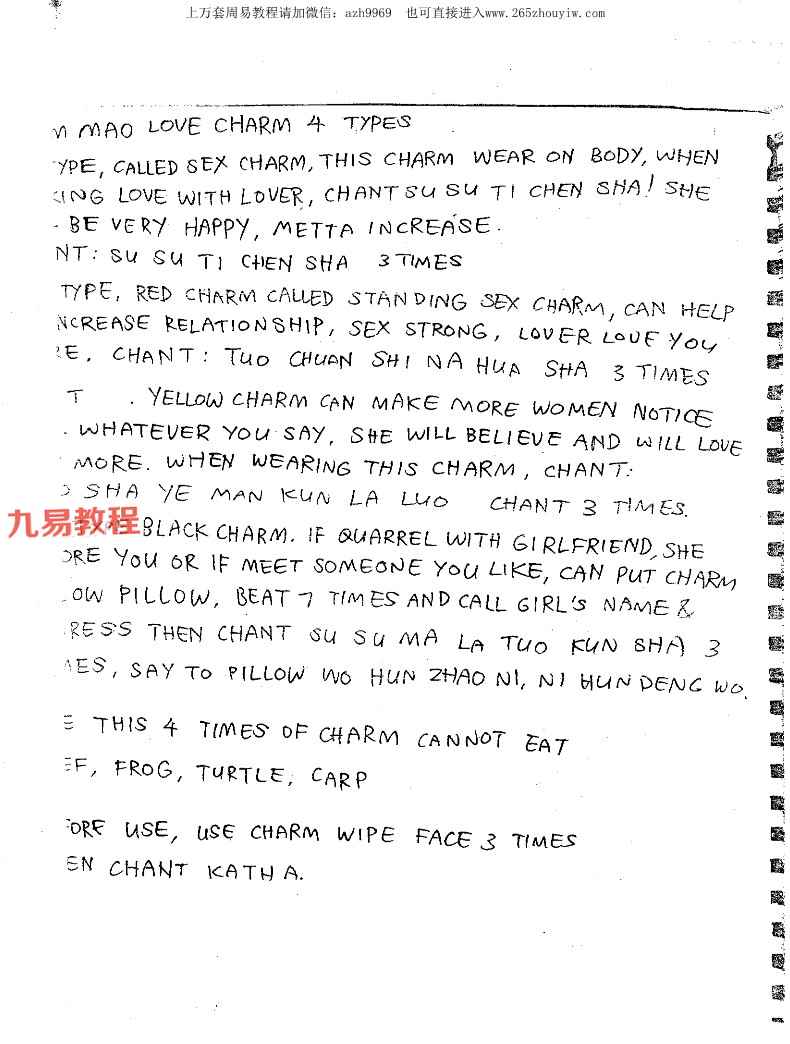 上万套周易教程请加微信：azh9969 也可直接进入www.265zhouyiw.com
MAO LOVE CHARM 4 TYPES
YPE, CALLED SEX CHARM, THIS CHARM WEAR ON BODY, WHEN
ING LOVE WITH LOVER, CHANT SU SU TI CHEN SHA! SHE
BE VERY HAPPY, METTA INCREASE.
NT: SU SU TI CHEN SHA 3 TIMES
TYPE, RED CHARM CALLED STANDING SEX CHARM, CAN HELP
NCREASE RELATIONSHIP, SEX STRONG, LOVER LOVE YOU
RE. CHANT: TUO CHUAN SHI NA HUA SHA 3 TIMES
T . YELLOW CHARM CAN MAKE MORE WOMEN NOTICE
. WHATEVER YOU SAY, SHE WILL BELIEVE AND WILL LOVE
MORE. WHEN WEARING THIS CHARM, CHANT:
SHA YE MAN KUN LA LUO CHANT 3 TIMES.
九易教程
BLACK CHARM. IF QUARREL WITH GIRLFRIEND, SHE
ORE YOU OR IF MEET SOMEONE YOU LIKE, CAN PUT CHARM
OW PILLOW, BEAT 7 TIMES AND CALL GIRL'S NAME &
RESS THEN CHANT SU SU MA LA TUO KUN SHA 3
MES, SAY TO PILLOW WO HUN ZHAO NI, NI HUN DENG WO.
E THIS 4 TIMES OF CHARM CANNOT EAT
EF, FROG, TURTLE, CARP
FORE USE, USE CHARM WIPE FACE 3 TIMES
EN CHANT KATHA.